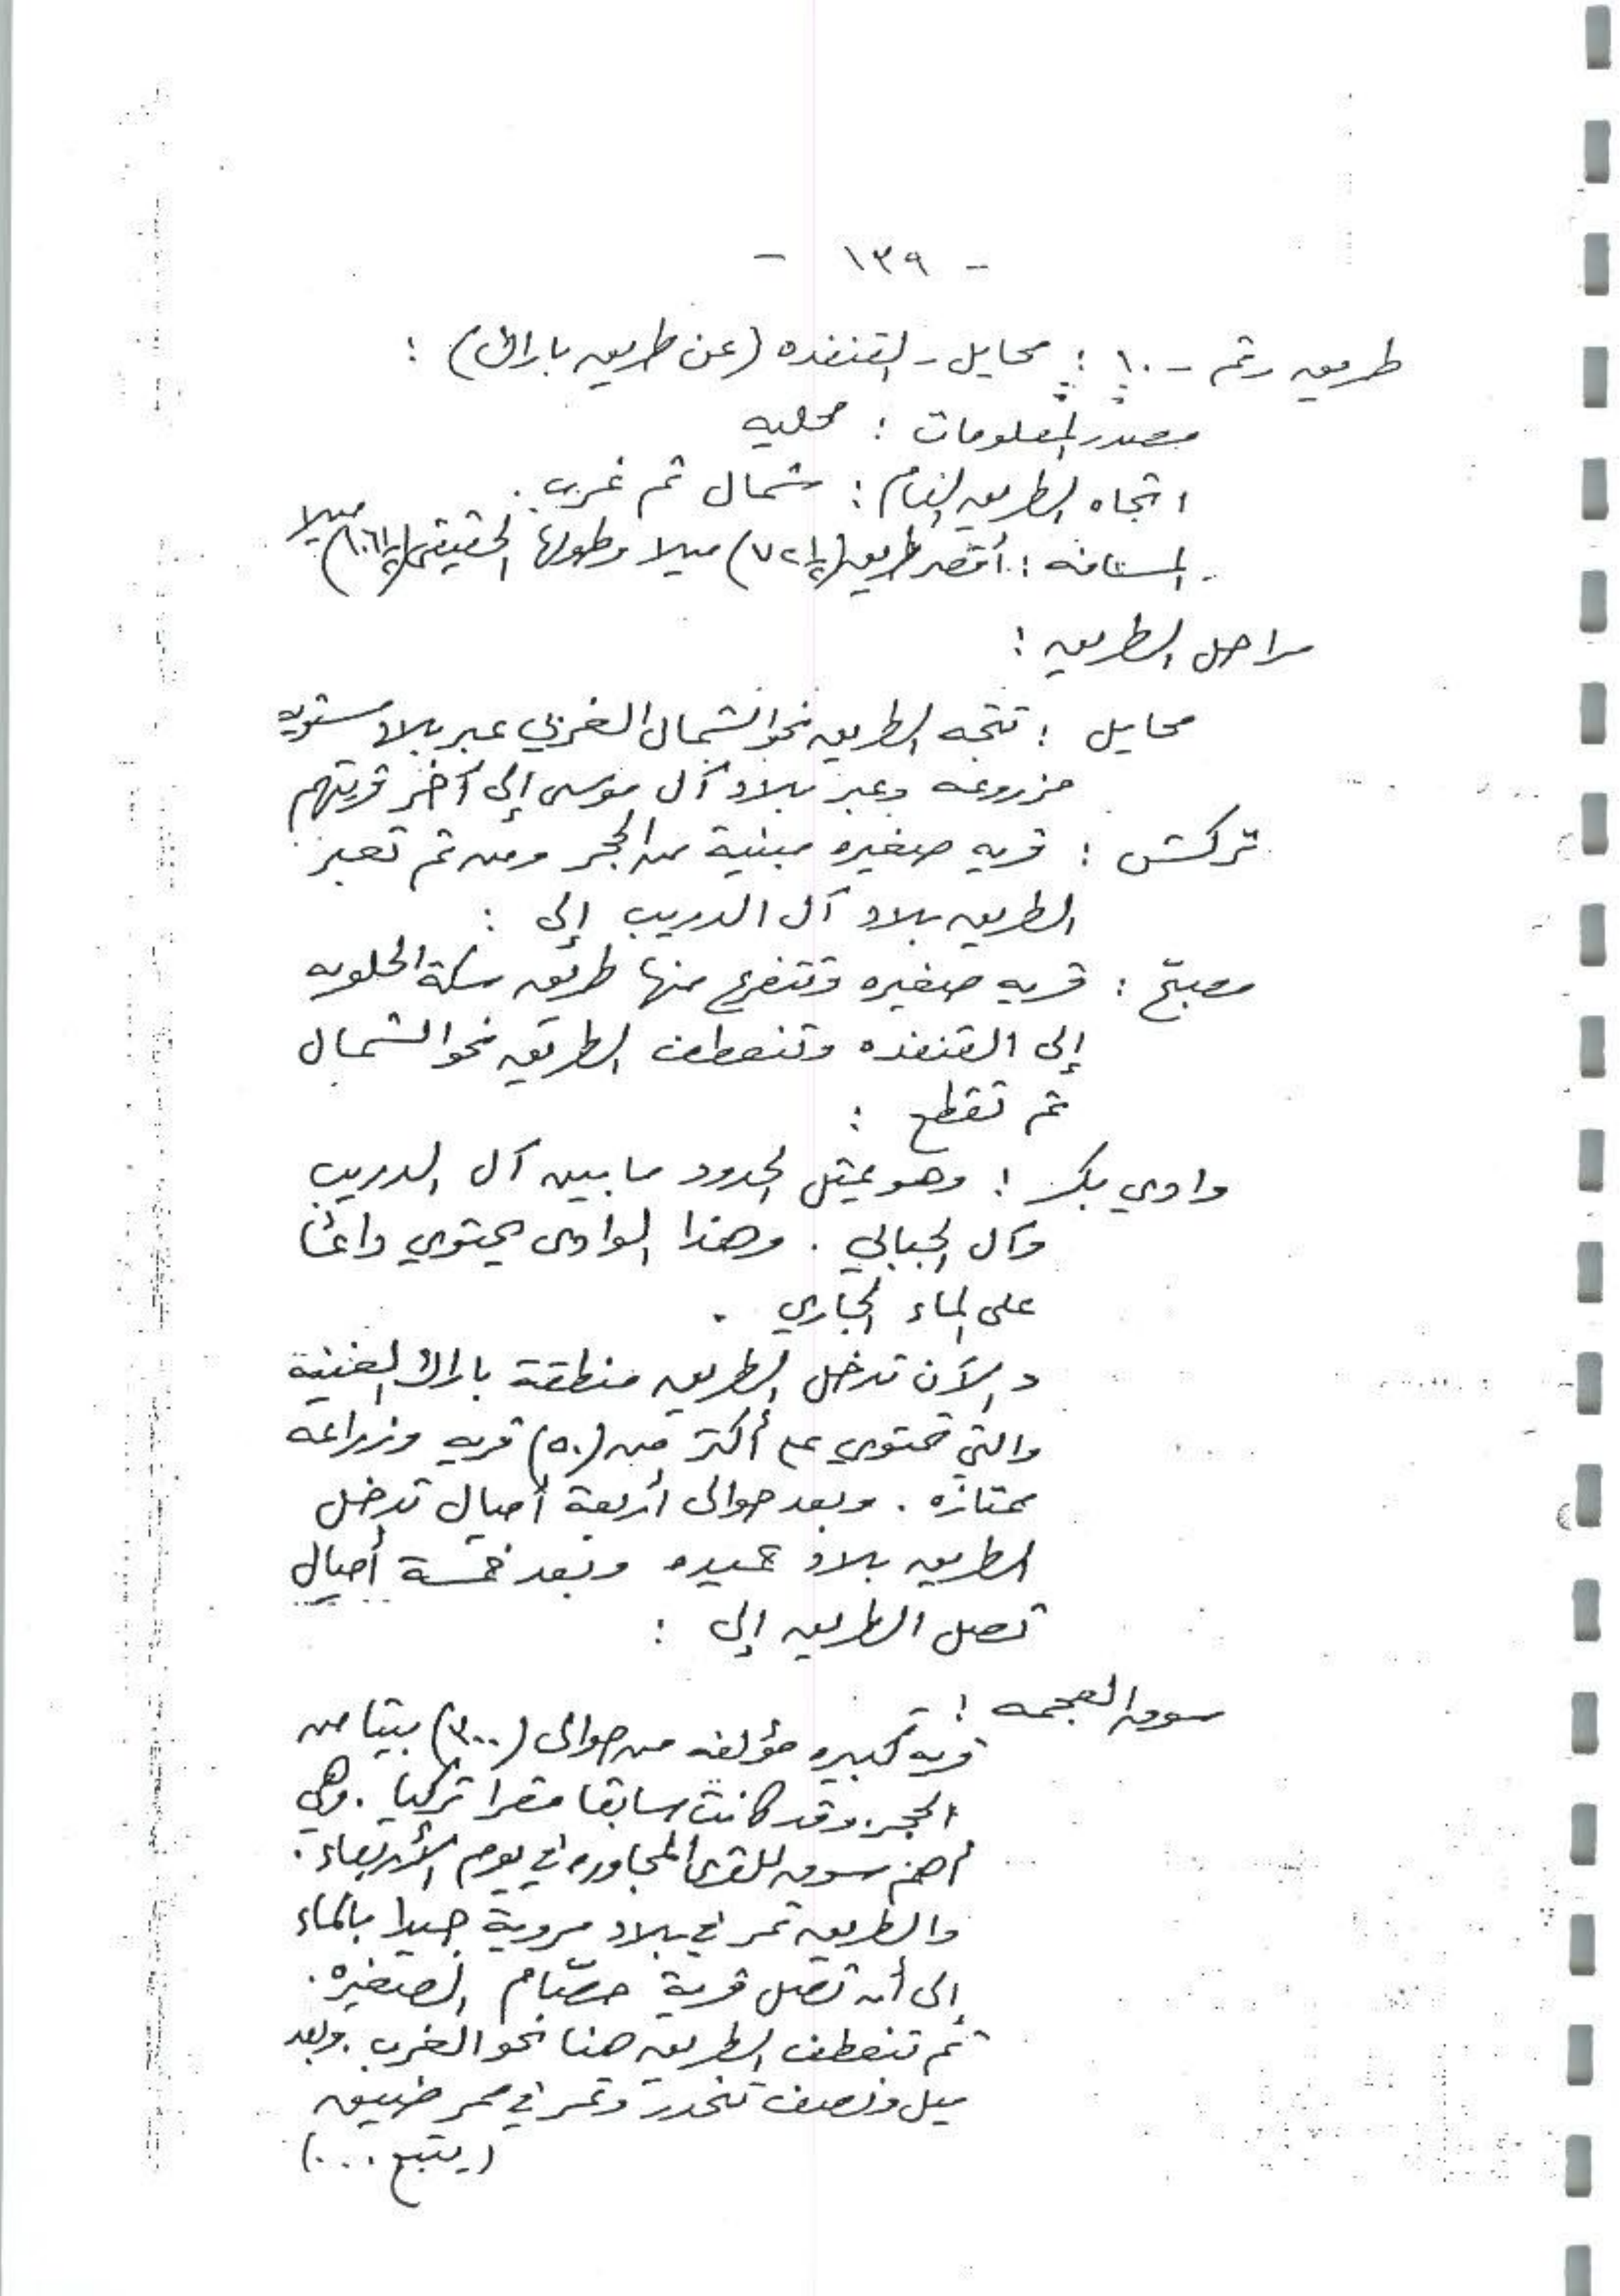 - ١٣٩ -
طريق رقم - ١٠ : محايل - القنفده (عن طريق بارق) :
مصدر المعلومات : محليه
اتجاه الطريق العام : شمال ثم غرب .
المسافه : أقصر طريق (٧٢½) ميلا وطولها الحقيقي (١٠٦½) ميلا
مراحل الطريق :
محايل : تتجه الطريق نحو الشمال الغربي عبر بلاد مستويه
مزروعه وعبر بلاد آل موسى إلى آخر قريتهم
تركش : قريه صغيره مبنية من الحجر ومن ثم تعبر
الطريق بلاد آل الدريب إلى :
مصبّح : قريه صغيره وتتفرع منها طريق سكة الحلويه
إلى القنفذه وتنعطف الطريق نحو الشمال
ثم تقطع :
وادي بكر : وهو يمثل الحدود ما بين آل الدريب
وآل الجبالي . وهذا الوادى يحتوي دائما
على الماء الجاري .
والآن تدخل الطريق منطقة بارق الغنية
والتي تحتوي على أكثر من (٥٠) قريه وزراعه
ممتازه . وبعد حوالى أربعة أميال تدخل
الطريق بلاد حميده وبعد خمسة أميال
تصل الطريق إلى :
سوق العجمه :
قريه كبيره مؤلفه من حوالى (٣٠٠) بيتا من
الحجر وقد كانت سابقا مقرا تركيا . وهي
أهم سوق للقرى المجاوره في يوم الأربعاء .
والطريق تمر في بلاد مروية جيدا بالماء
إلى أن تصل قرية الصغيره .
ثم تنعطف الطريق هنا نحو الغرب . وبعد
ميل ونصف تنحدر وتمر في ممر ضيق
(يتبع ...)